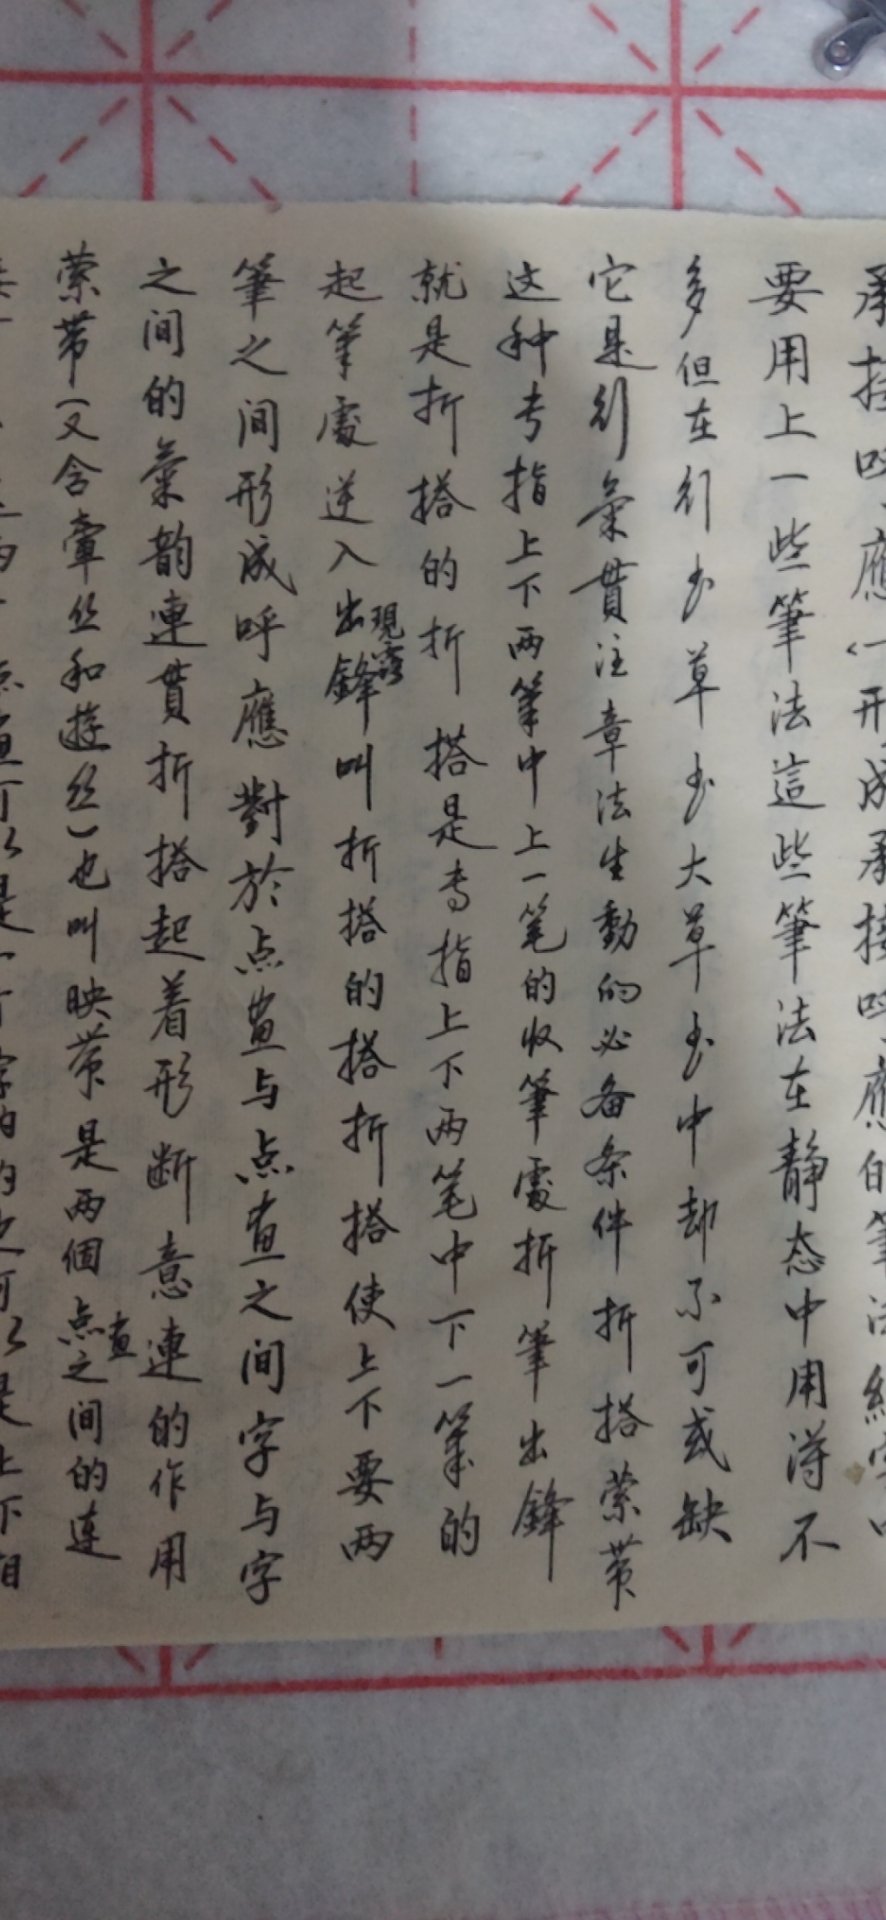 承接呼應(一形成承接呼應的筆法
要用上一些筆法這些筆法在静态中用得不
多但在行书草书大草书中却不可或缺
它是行氣貫注章法生動的必备条件折搭萦带
这种专指上下两筆中上一笔的收筆處折筆出鋒
就是折搭的折搭是专指上下两笔中下一筆的
起筆處逆入出鋒現露叫折搭的搭折搭使上下要两
筆之间形成呼應對於点畫与点畫之间字与字
之间的氣韵連貫折搭起着形断意連的作用
萦带(又含牽丝和遊丝)也叫映带是两個点畫之间的连